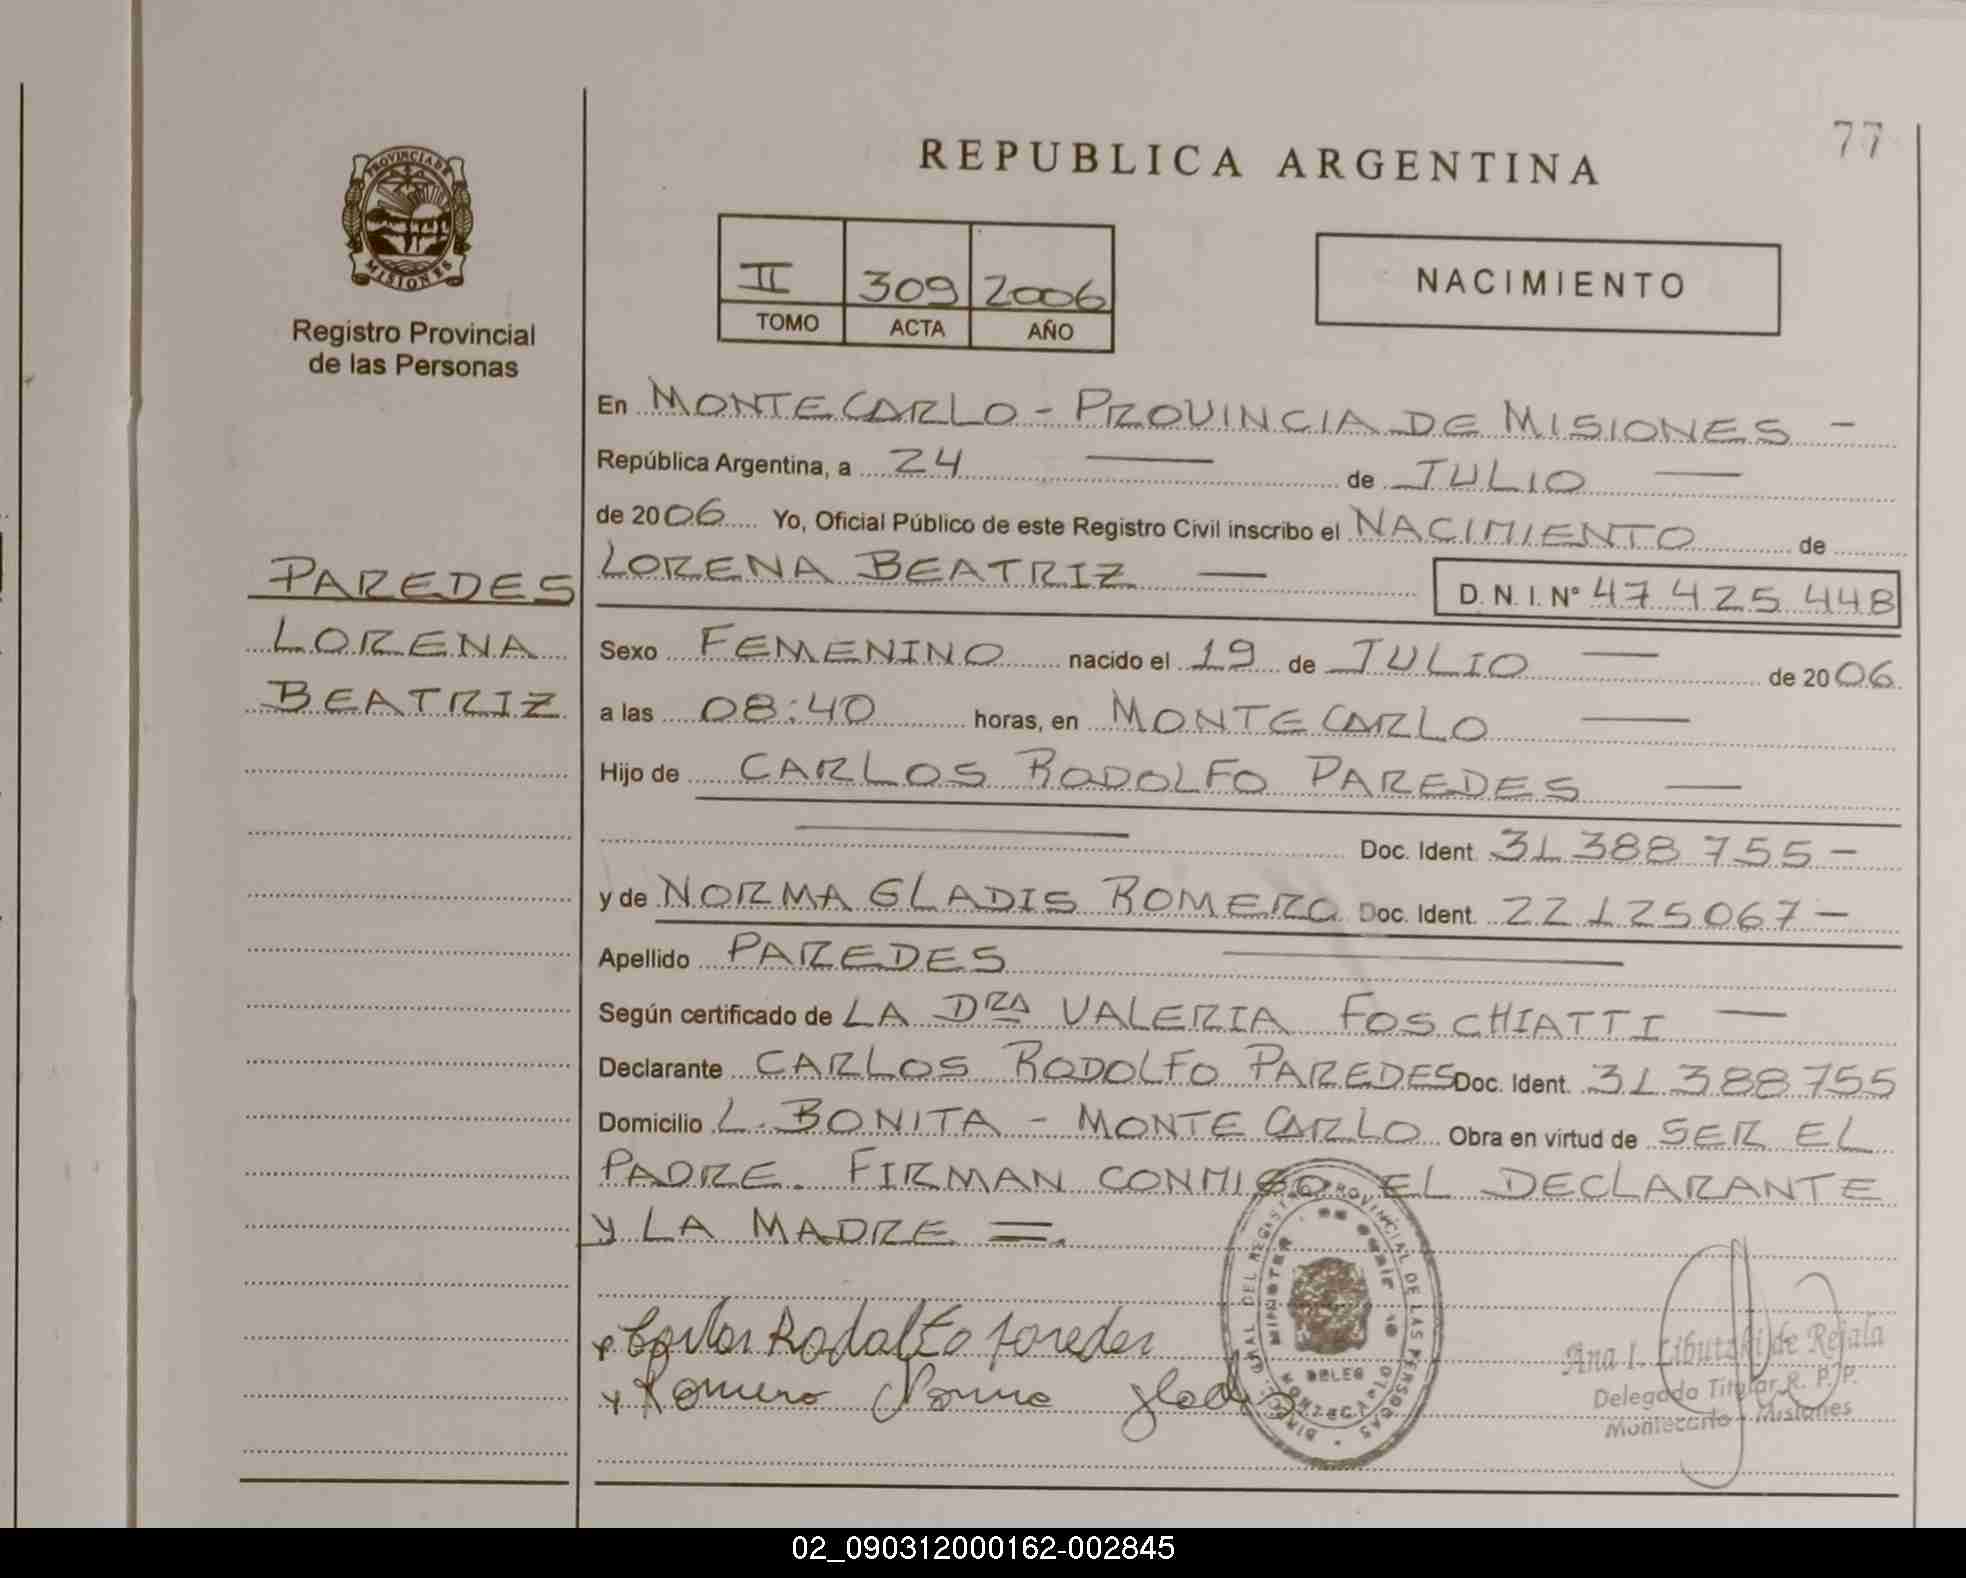 77
REPUBLICA ARGENTINA
PROVINCIA DE
MISIONES
Registro Provincial
de las Personas
II 309 2006
TOMO ACTA AÑO
NACIMIENTO
En MONTECARLO - PROVINCIA DE MISIONES -
República Argentina, a 24 — de JULIO —
de 2006 Yo, Oficial Público de este Registro Civil inscribo el NACIMIENTO de
PAREDES
LORENA
BEATRIZ
LORENA BEATRIZ — D. N. I. N° 47 425 448
Sexo FEMENINO nacido el 19 de JULIO — de 2006
a las 08:40 horas, en MONTECARLO —
Hijo de CARLOS RODOLFO PAREDES —
— Doc. Ident. 31 388 755 -
y de NORMA GLADIS ROMERO Doc. Ident. 22 125067 -
Apellido PAREDES —
Según certificado de LA DRA VALERIA FOSCHIATTI —
Declarante CARLOS RODOLFO PAREDES Doc. Ident. 31 388755
Domicilio L. BONITA - MONTECARLO Obra en virtud de SER EL
PADRE. FIRMAN CONMIGO EL DECLARANTE
y LA MADRE =.
Carlos Rodolfo paredes
Romero Norma gladis
Ana I. Libutzki de Rejala
Delegado Titular R. P. P.
Montecarlo - Misiones
02_090312000162-002845